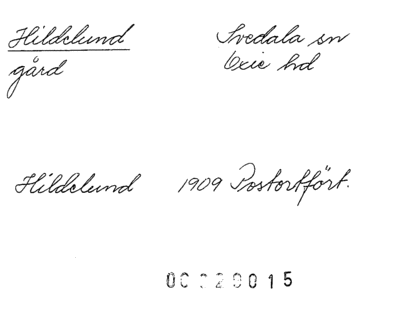 Hildelund Svedala sn
gård Oxie hd
Hildelund 1909 Postortfört.